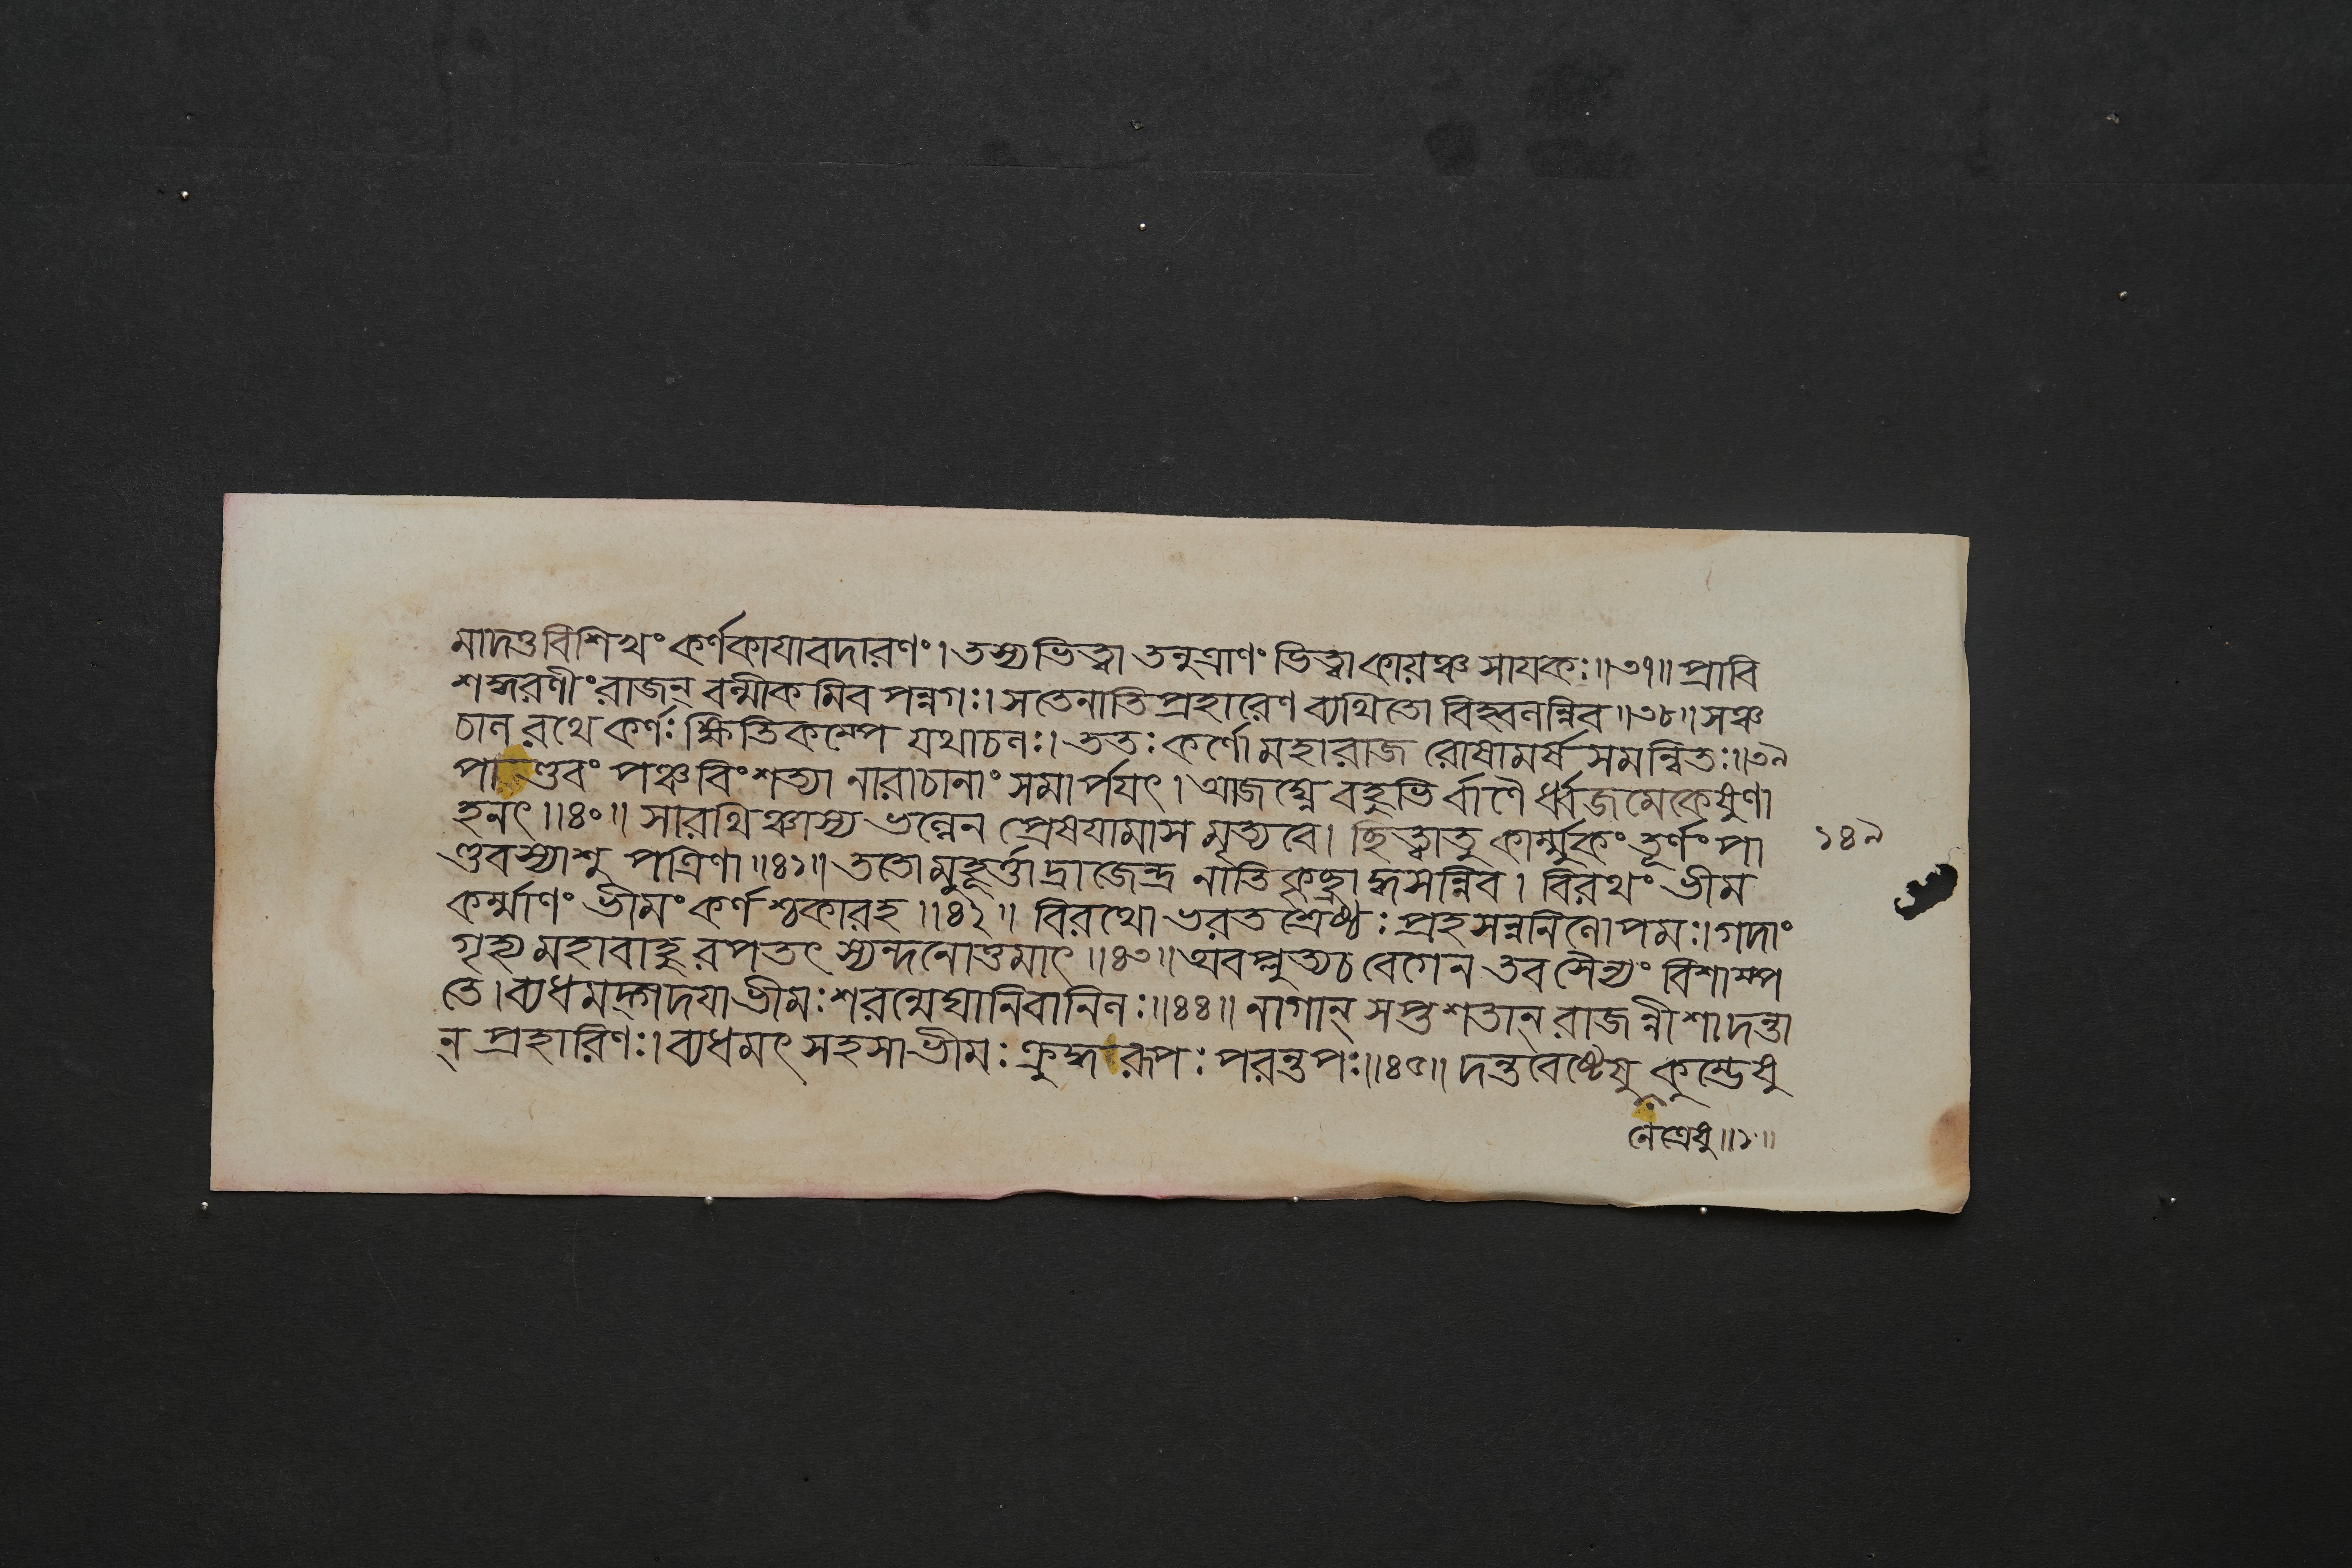 মাদত্ত বিশিখং কর্ণকাযাবদারণং। তস্য ভিত্ত্বা তনুত্রাণং ভিত্ত্বা কায়ঞ্চ সাযকঃ॥৩৭॥ প্রাবি
শদ্ধরণীং রাজন্ বল্মীকমিব পন্নগঃ। সতেনাতিপ্রহারেণ ব্যথিতো বিহ্বলন্নিব॥৩৮॥ সঞ্চ
চাল রথে কর্ণঃ ক্ষিতিকম্পে যথাচলঃ। ততঃ কর্ণো মহারাজ রোষামর্ষ সমন্বিতঃ॥৩৯
পাণ্ডবং পঞ্চবিংশত্যা নারাচানাং সমার্পযৎ। আজঘ্নে বহুভির্বাণৈ র্ধ্বজমেকেষুণা
হনৎ॥৪০॥ সারথিঞ্চাস্য ভল্লেন প্রেষযামাস মৃত্যবে। ছিত্ত্বাতু কার্ম্মুকং তূর্ণং পা
ণ্ডবস্যাশু পত্রিণা॥৪১॥ ততো মুহূর্ত্তাদ্রাজেন্দ্র নাতিকৃচ্ছ্রাদ্ধসন্নিব। বিরথং ভীম
কর্ম্মাণং ভীমং কর্ণশ্চকারহ॥৪২॥ বিরথো ভরতশ্রেষ্ঠঃ প্রহসন্ননিলোপমঃ। গদাং
গৃহ্য মহাবাহু রপতৎ স্যন্দনোত্তমাৎ॥৪৩॥ অবপ্লুত্যচ বেগেন তব সৈন্যং বিশাম্প
তে। ব্যধমদ্গদযা ভীমঃ শরন্মেঘানিবানিলঃ॥৪৪॥ নাগান্ সপ্তশতান্ রাজন্নীশাদন্তা
ন্ প্রহারিণঃ। ব্যধমৎ সহসা ভীমঃ ক্রুদ্ধরূপঃ পরন্তপঃ॥৪৫॥ দন্তবেষ্টেষু কুম্ভেষু
নেত্রেষু॥১॥
১৪৯